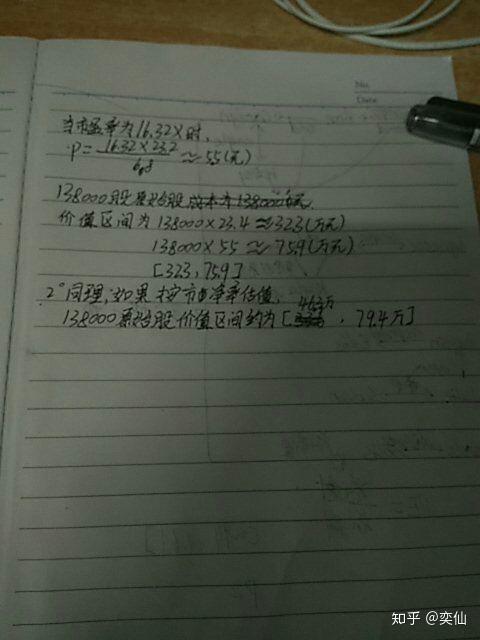 No.
Date
当市盈率为16.32X时,
P= 16.32×23.2 / 6.8 ≈ 5.5(元)
138000股原始股成本为138000元
价值区间为 138000×23.4≈323(万元)
138000×55≈75.9(万元)
[323,75.9]
2° 同理,如果按市净率估值,
138000原始股价值区间约为[46.3万,79.4万]
知乎 @奕仙